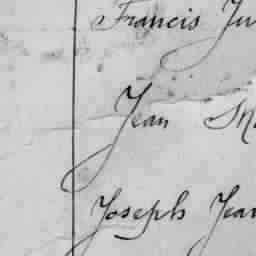 Francis Ju
Jean
Joseph Jean